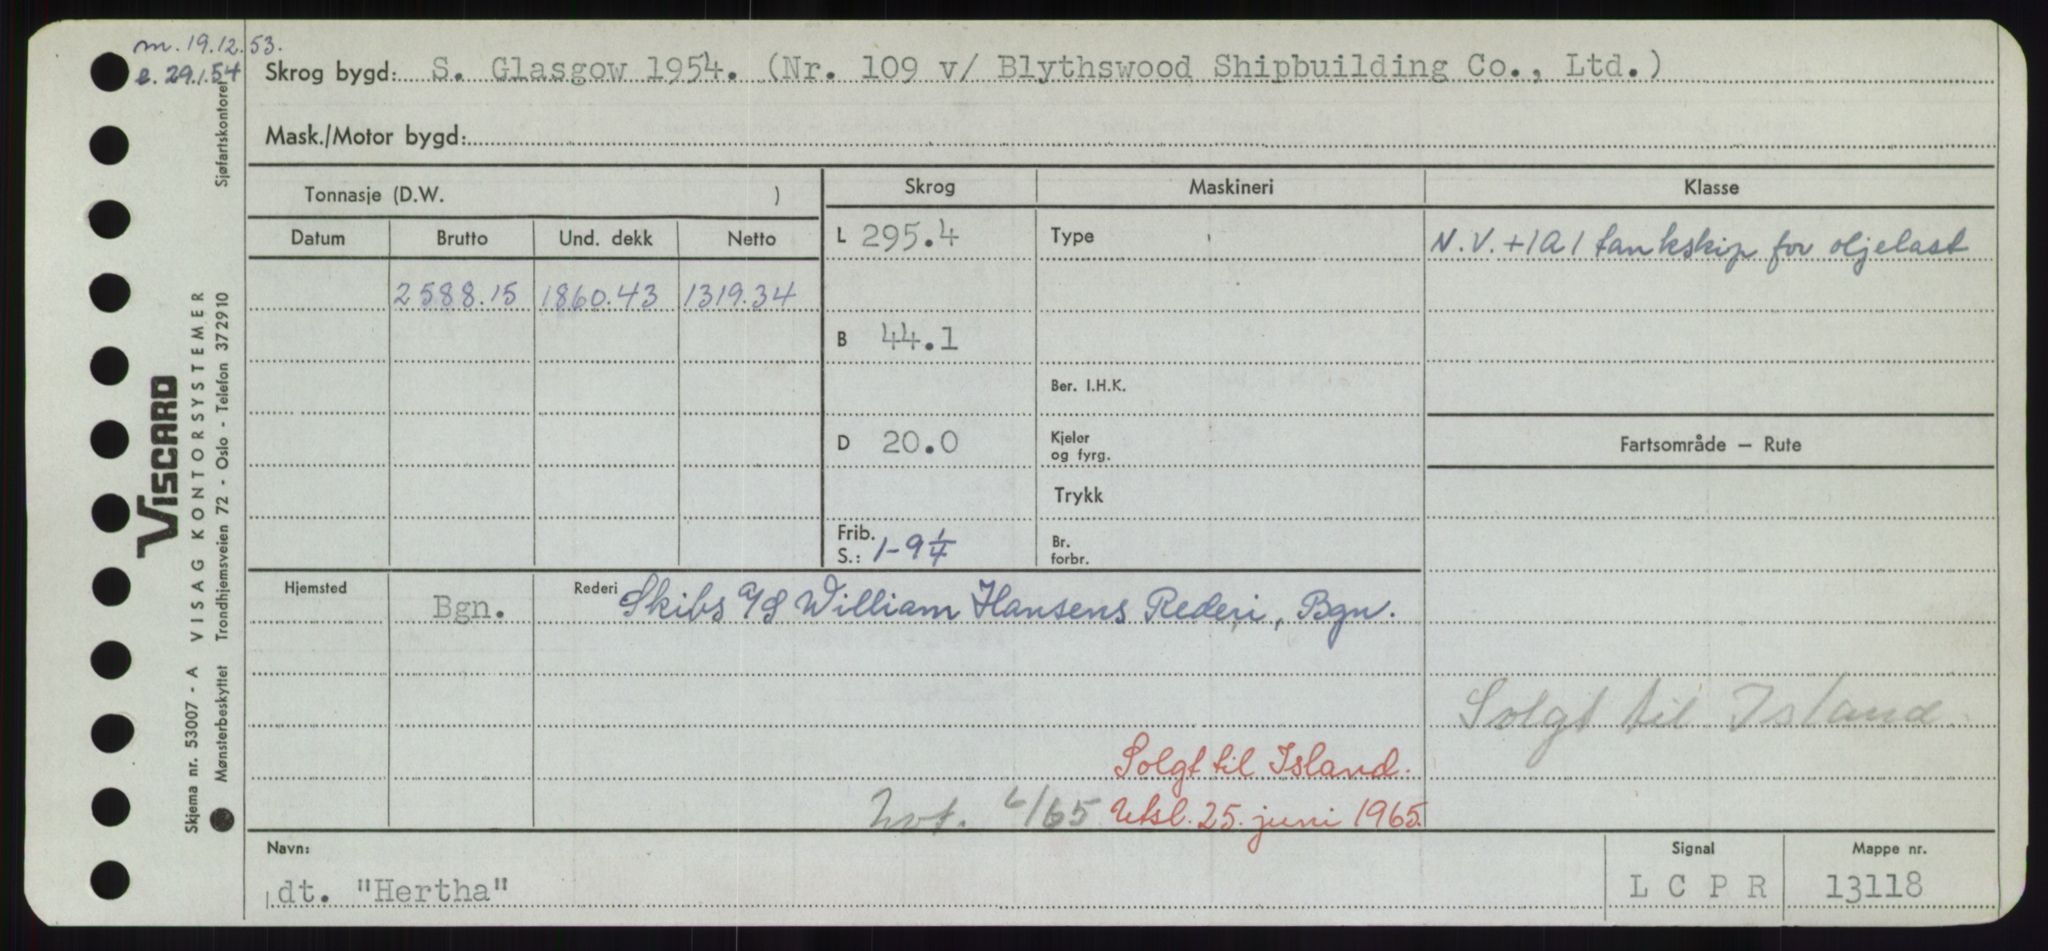 m. 19.12.53.
e. 29.1.54
Skrog bygd: S. Glasgow 1954. (Nr. 109 v/ Blythswood Shipbuilding Co., Ltd.)
Mask./Motor bygd:
Tonnasje (D.W. )
Skrog Maskineri Klasse
Datum Brutto Und. dekk Netto
L 295.4 Type N.V. +1A1 tankskip for oljelast
2588.15 1860.43 1319.34
B 44.1
Ber. I.H.K.
D 20.0 Kjeler og fyrg. Fartsområde — Rute
Trykk
Frib. S.: 1-9 1/4 Br. forbr.
Hjemsted Bgn. Rederi Skibs A/S William Hansens Rederi, Bgn.
Solgt til Island
Solgt til Island.
/65 Utsl. 25. juni 1965.
Navn: Signal Mappe nr.
dt. "Hertha" L C P R 13118
Sjøfartskontoret
VISCARD
VISAG KONTORSYSTEMER
Trondhjemsveien 72 - Oslo - Telefon 372910
Skjema nr. 53007 - A
Mønsterbeskyttet